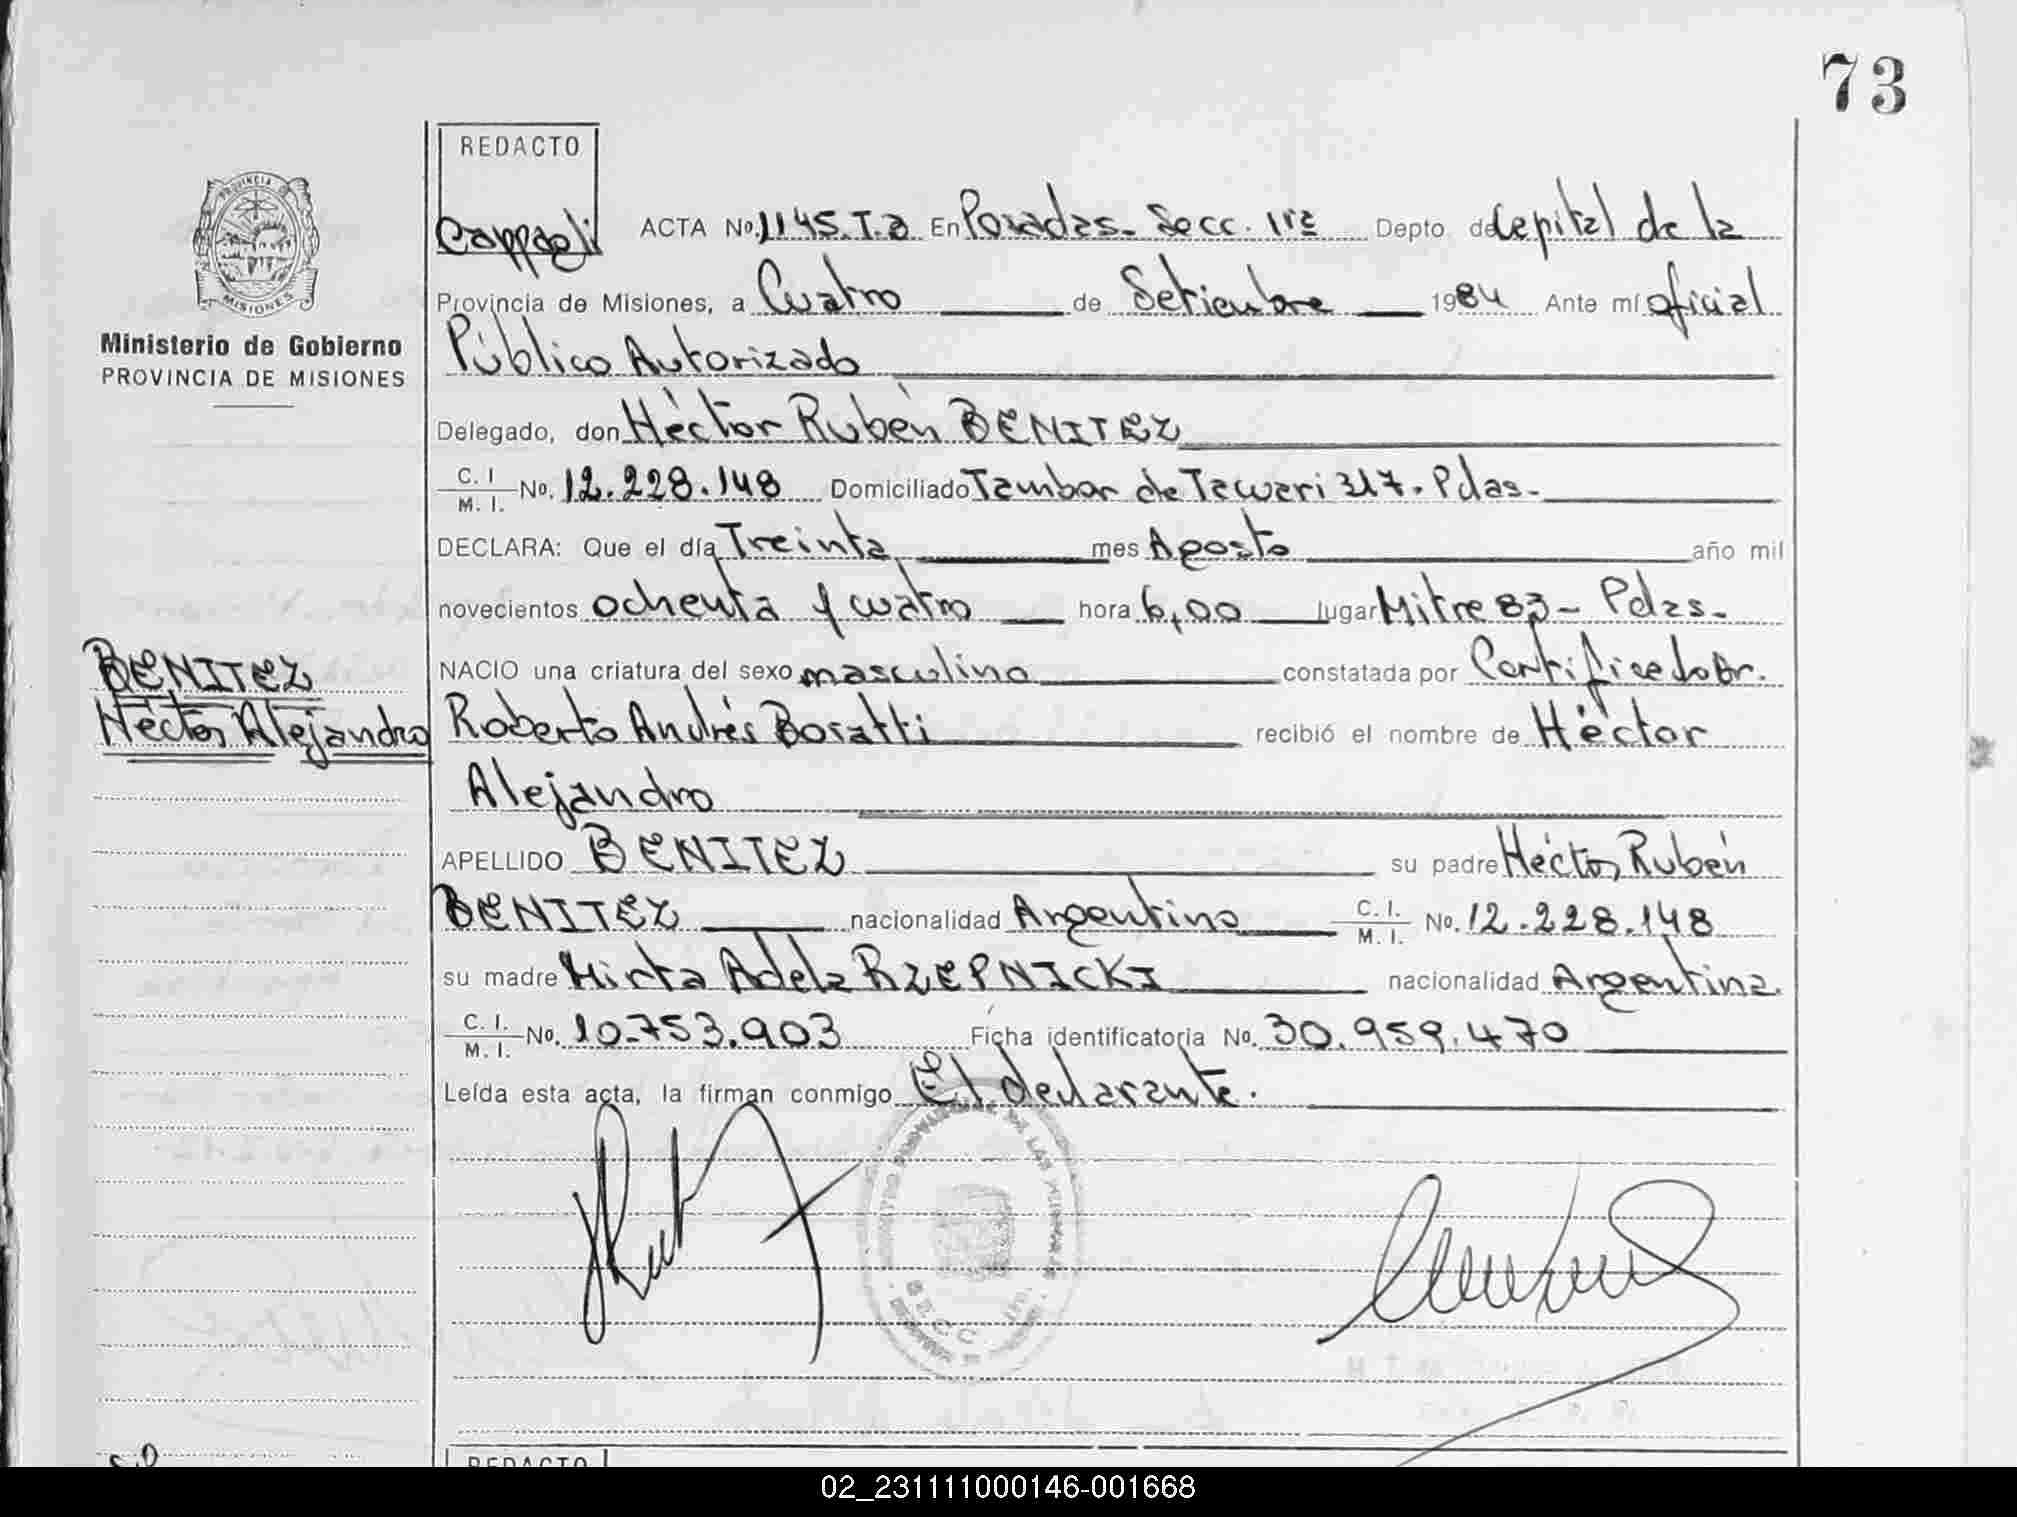 73
REDACTO
ACTA Nº. 1145.T.2 En Posadas. Secc. 11ª Depto de Capital de la
Provincia de Misiones, a Cuatro de Setiembre 1984 Ante mí oficial
Público Autorizado
Delegado, don Héctor Rubén BENITEZ
C. I. / M. I. Nº. 12.228.148 Domiciliado Tambor de Tacuari 317. Pdas.
DECLARA: Que el día Treinta mes Agosto año mil
novecientos ochenta y cuatro hora 6,00 lugar Mitre 83 - Pdas.
NACIO una criatura del sexo masculino constatada por Certificado Dr.
Roberto Andrés Bosatti recibió el nombre de Héctor
Alejandro
APELLIDO BENITEZ su padre Héctor Rubén
BENITEZ nacionalidad Argentino C. I. / M. I. Nº. 12.228.148
su madre Mirta Adela RZEPNICKI nacionalidad Argentina.
C. I. / M. I. Nº. 10.753.903 Ficha identificatoria Nº. 30.959.470
Leída esta acta, la firman conmigo El declarante.
PROVINCIA DE
MISIONES
Ministerio de Gobierno
PROVINCIA DE MISIONES
BENITEZ
Héctor Alejandro
REDACTO
02_231111000146-001668